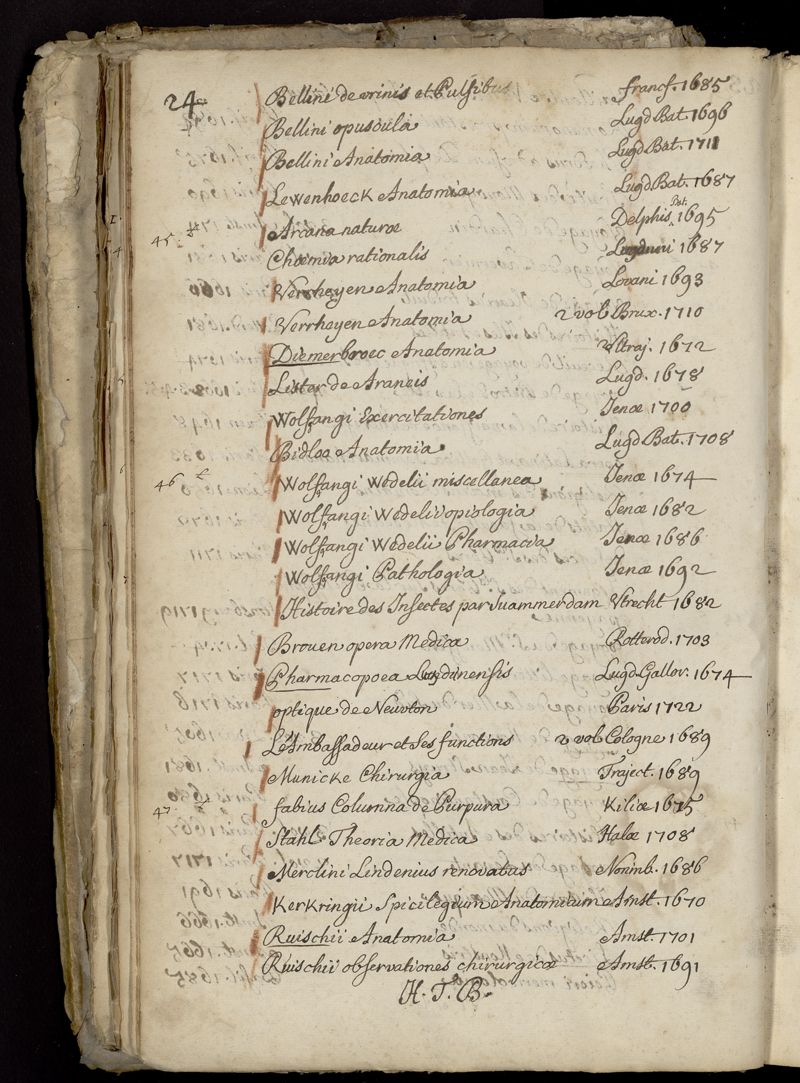 24
Bellini de vrinis et Pulsibus francf. 1685
Bellini opuscula Lugd Bat. 1696
Bellini Anatomia Lugd Bat. 1711
Lewenhoeck Anatomia Lugd Bat. 1687
45 Arcana naturæ Delphis Bat. 1695
Chæmia rationalis 1687
Verrheyen Anatomia Lovani 1693
Verrheyen Anatomia 2 vol Brux. 1710
Diemerbroec Anatomia Vltraj. 1672
Listar de Araneis Lugd. 1678
Wolfangi Exercitationes Jenæ 1700
Bidloo Anatomia Lugd Bat. 1708
46 Wolfangi Wedelii miscellanea Jenæ 1674
Wolfangi Wedelii opiologia Jenæ 1682
Wolfangi Wedelii Pharmacia Jenæ 1686
Wolfangi Pathologia Jenæ 1692
Histoire des Insectes par Suammerdam Vtrecht 1682
Brouen opera Medica Rotterod. 1703
Pharmacopoea Lugdunensis Lugd Gallor. 1674
optique de Neuvton Paris 1722
L'Ambassadeur et Ses functions 2 vol Cologne 1689
Municke Chirurgia Traject. 1689
47 fabius Columna de Purpura Kiliæ 1675
Stahl Theoria Medica Halæ 1708
Merclini Lindenius renovatus Norimb. 1686
Kerkringii Spicilegium Anatomicum Amst. 1670
Ruischii Anatomia Amst. 1701
Ruischii observationes chirurgicæ Amst. 1691
H. T. B.